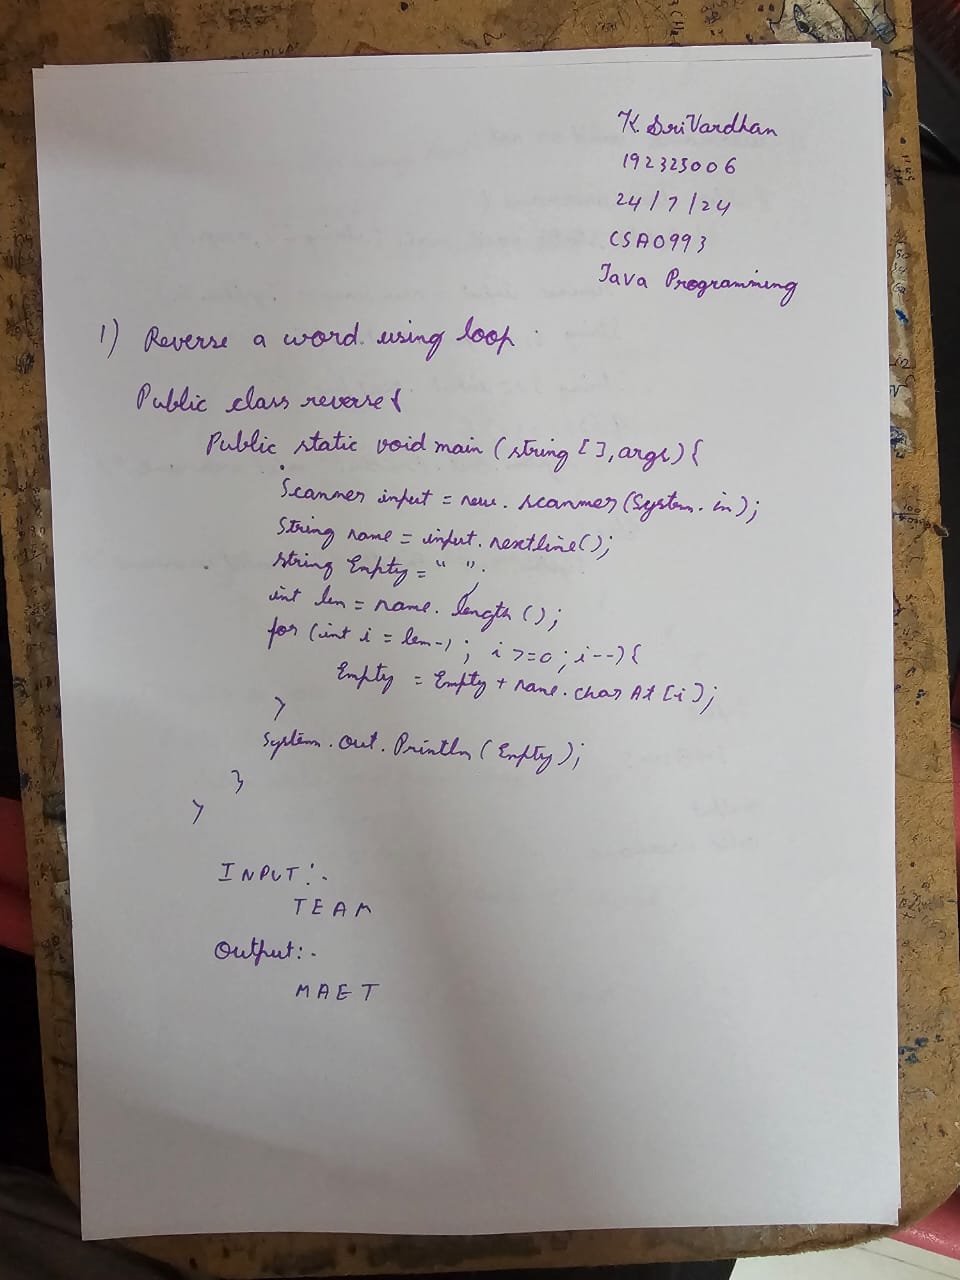 K. SriVardhan
192325006
24/7/24
CSA0993
Java Programming
1) Reverse a word using loop :
Public class reverse{
Public static void main (string [], args) {
Scanner input = new. scanner (System. in);
String name = input. nextline();
string Empty = " ";
int len = name. length ();
for (int i = len-1 ; i >=0 ; i--) {
Empty = Empty + name. char At [i];
}
System. out. Println (Empty);
}
}
INPUT :-
TEAM
Output :-
MAET